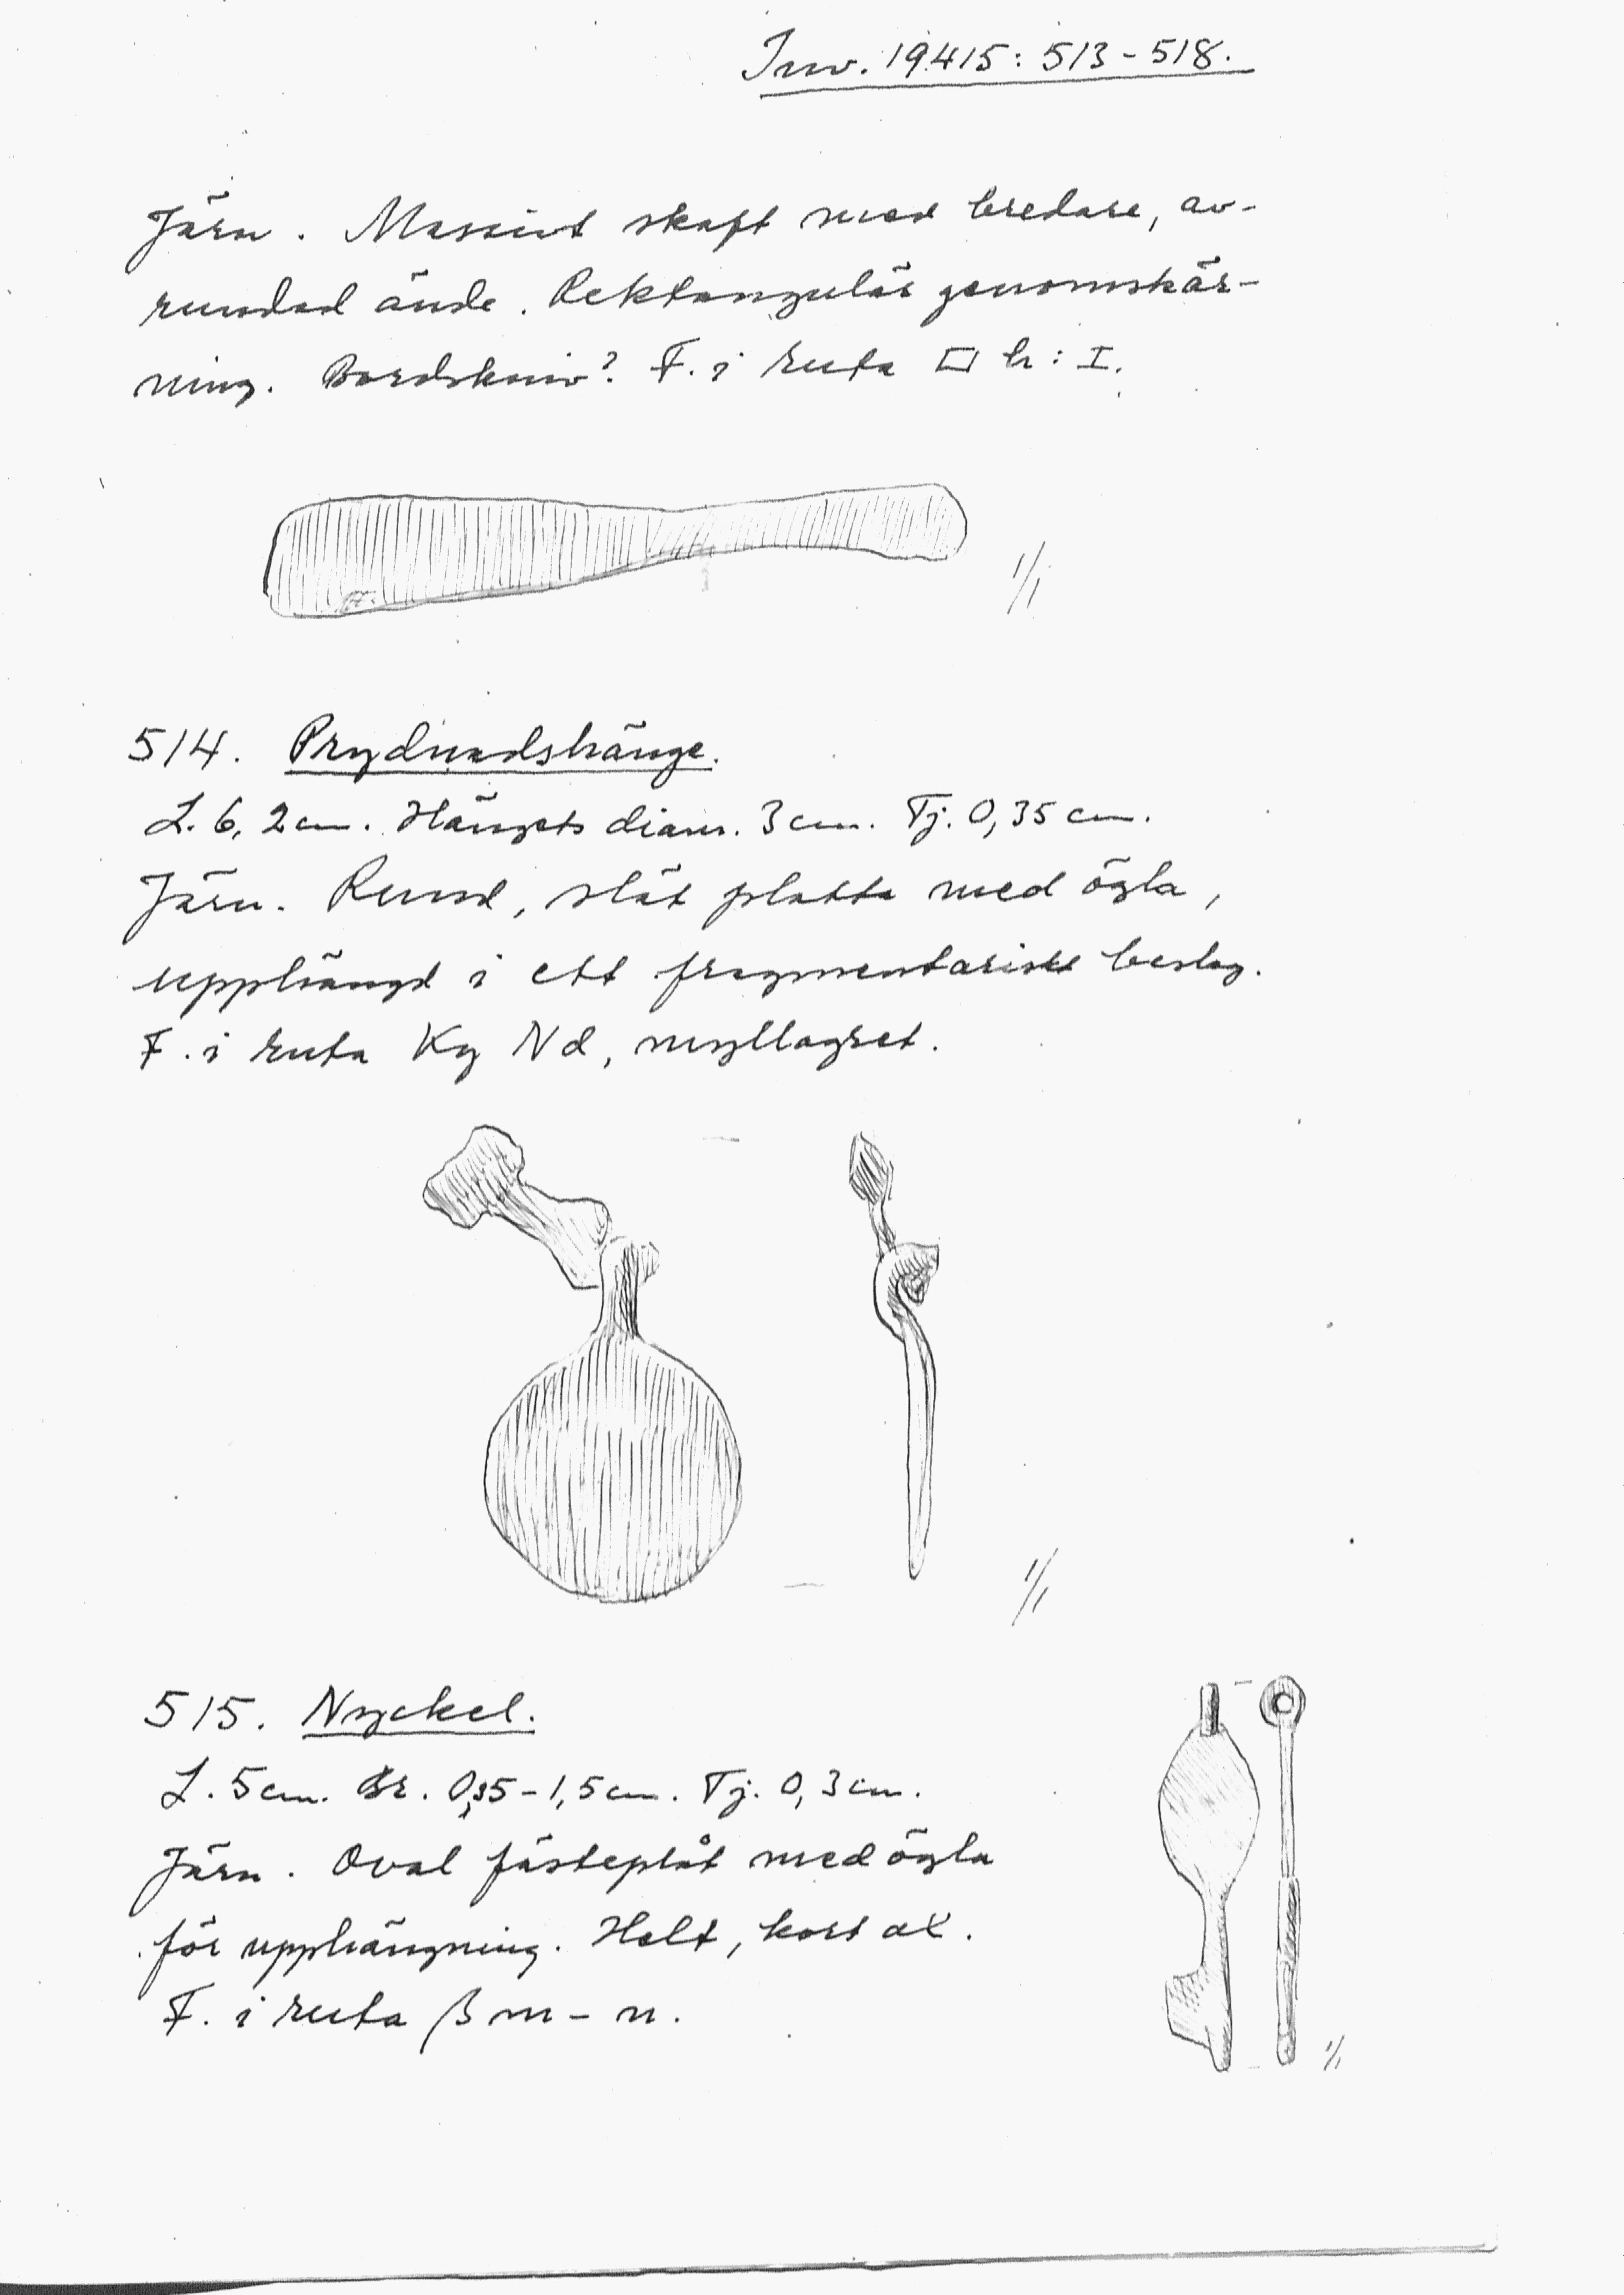 Inv. 19415: 513-518.
Järn. Massivt skaft med bredare, av-
rundad ände. Rektangulär genomskär-
ning. Bordskniv? F. i ruta □ h: I.
1/1
514. Prydnadshänge.
L. 6,2 cm. Hängets diam. 3 cm. Tj. 0,35 cm.
Järn. Rund, slät platta med ögla,
upphängd i ett fragmentariskt beslag.
F. i ruta Kg Nd, myllagret.
1/1
515. Nyckel.
L. 5 cm. Br. 0,35-1,5 cm. Tj. 0,3 cm.
Järn. Oval fästeplåt med ögla
för upphängning. Helt, kort ax.
F. i ruta β m - n.
1/1